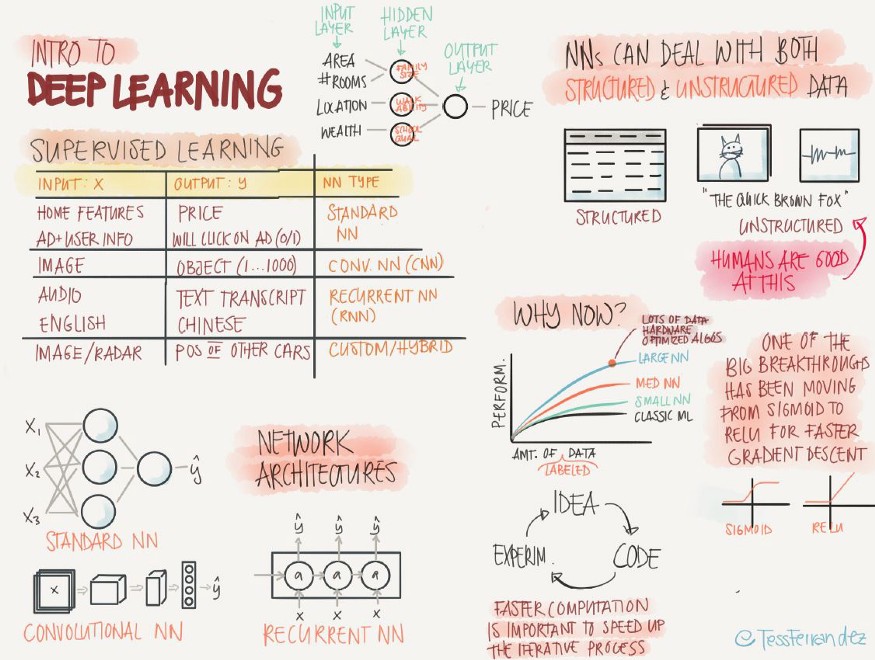 INTRO TO
DEEP LEARNING
INPUT LAYER
HIDDEN LAYER
OUTPUT LAYER
AREA
#ROOMS
LOCATION
WEALTH
FAMILY SIZE
SCHOOL QUAL
PRICE
SUPERVISED LEARNING
INPUT: X OUTPUT: Y NN TYPE
HOME FEATURES PRICE STANDARD
AD+USER INFO WILL CLICK ON AD (0/1) NN
IMAGE OBJECT (1...1000) CONV. NN (CNN)
AUDIO TEXT TRANSCRIPT RECURRENT NN
ENGLISH CHINESE (RNN)
IMAGE/RADAR POS OF OTHER CARS CUSTOM/HYBRID
X1
X2
X3
ŷ
STANDARD NN
X
ŷ
CONVOLUTIONAL NN
NETWORK
ARCHITECTURES
ŷ ŷ ŷ
a a a
X X X
RECURRENT NN
NNs CAN DEAL WITH BOTH
STRUCTURED & UNSTRUCTURED DATA
STRUCTURED
"THE QUICK BROWN FOX"
UNSTRUCTURED
HUMANS ARE GOOD
AT THIS
WHY NOW?
LOTS OF DATA
HARDWARE
OPTIMIZED ALGOS
LARGE NN
MED NN
SMALL NN
CLASSIC ML
PERFORM.
AMT. OF DATA
LABELED
IDEA
CODE
EXPERIM.
FASTER COMPUTATION
IS IMPORTANT TO SPEED UP
THE ITERATIVE PROCESS
ONE OF THE
BIG BREAKTHROUGHS
HAS BEEN MOVING
FROM SIGMOID TO
RELU FOR FASTER
GRADIENT DESCENT
SIGMOID
RELU
@TessFerrandez